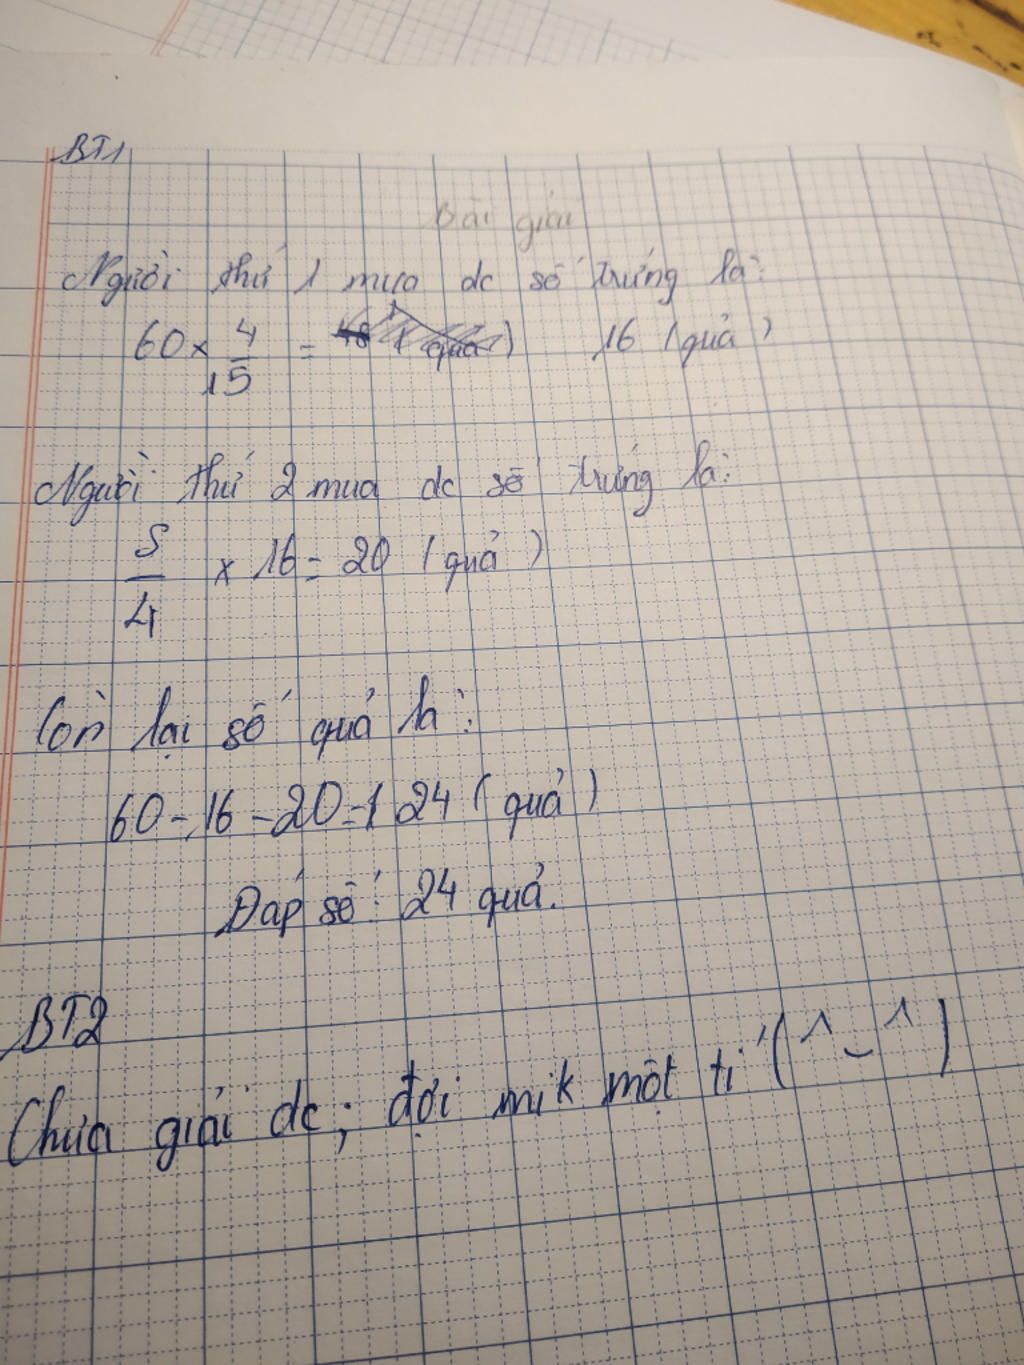 BT1
Bài giải
Người thứ 1 mua dc số trứng là:
60 x 4/15 = 16 (quả)
Người thứ 2 mua dc số trứng là:
5/4 x 16 = 20 (quả)
Còn lại số quả là:
60 - 16 - 20 = 24 (quả)
Đáp số: 24 quả.
BT2
Chưa giải dc; đợi mik một tí (^_^)